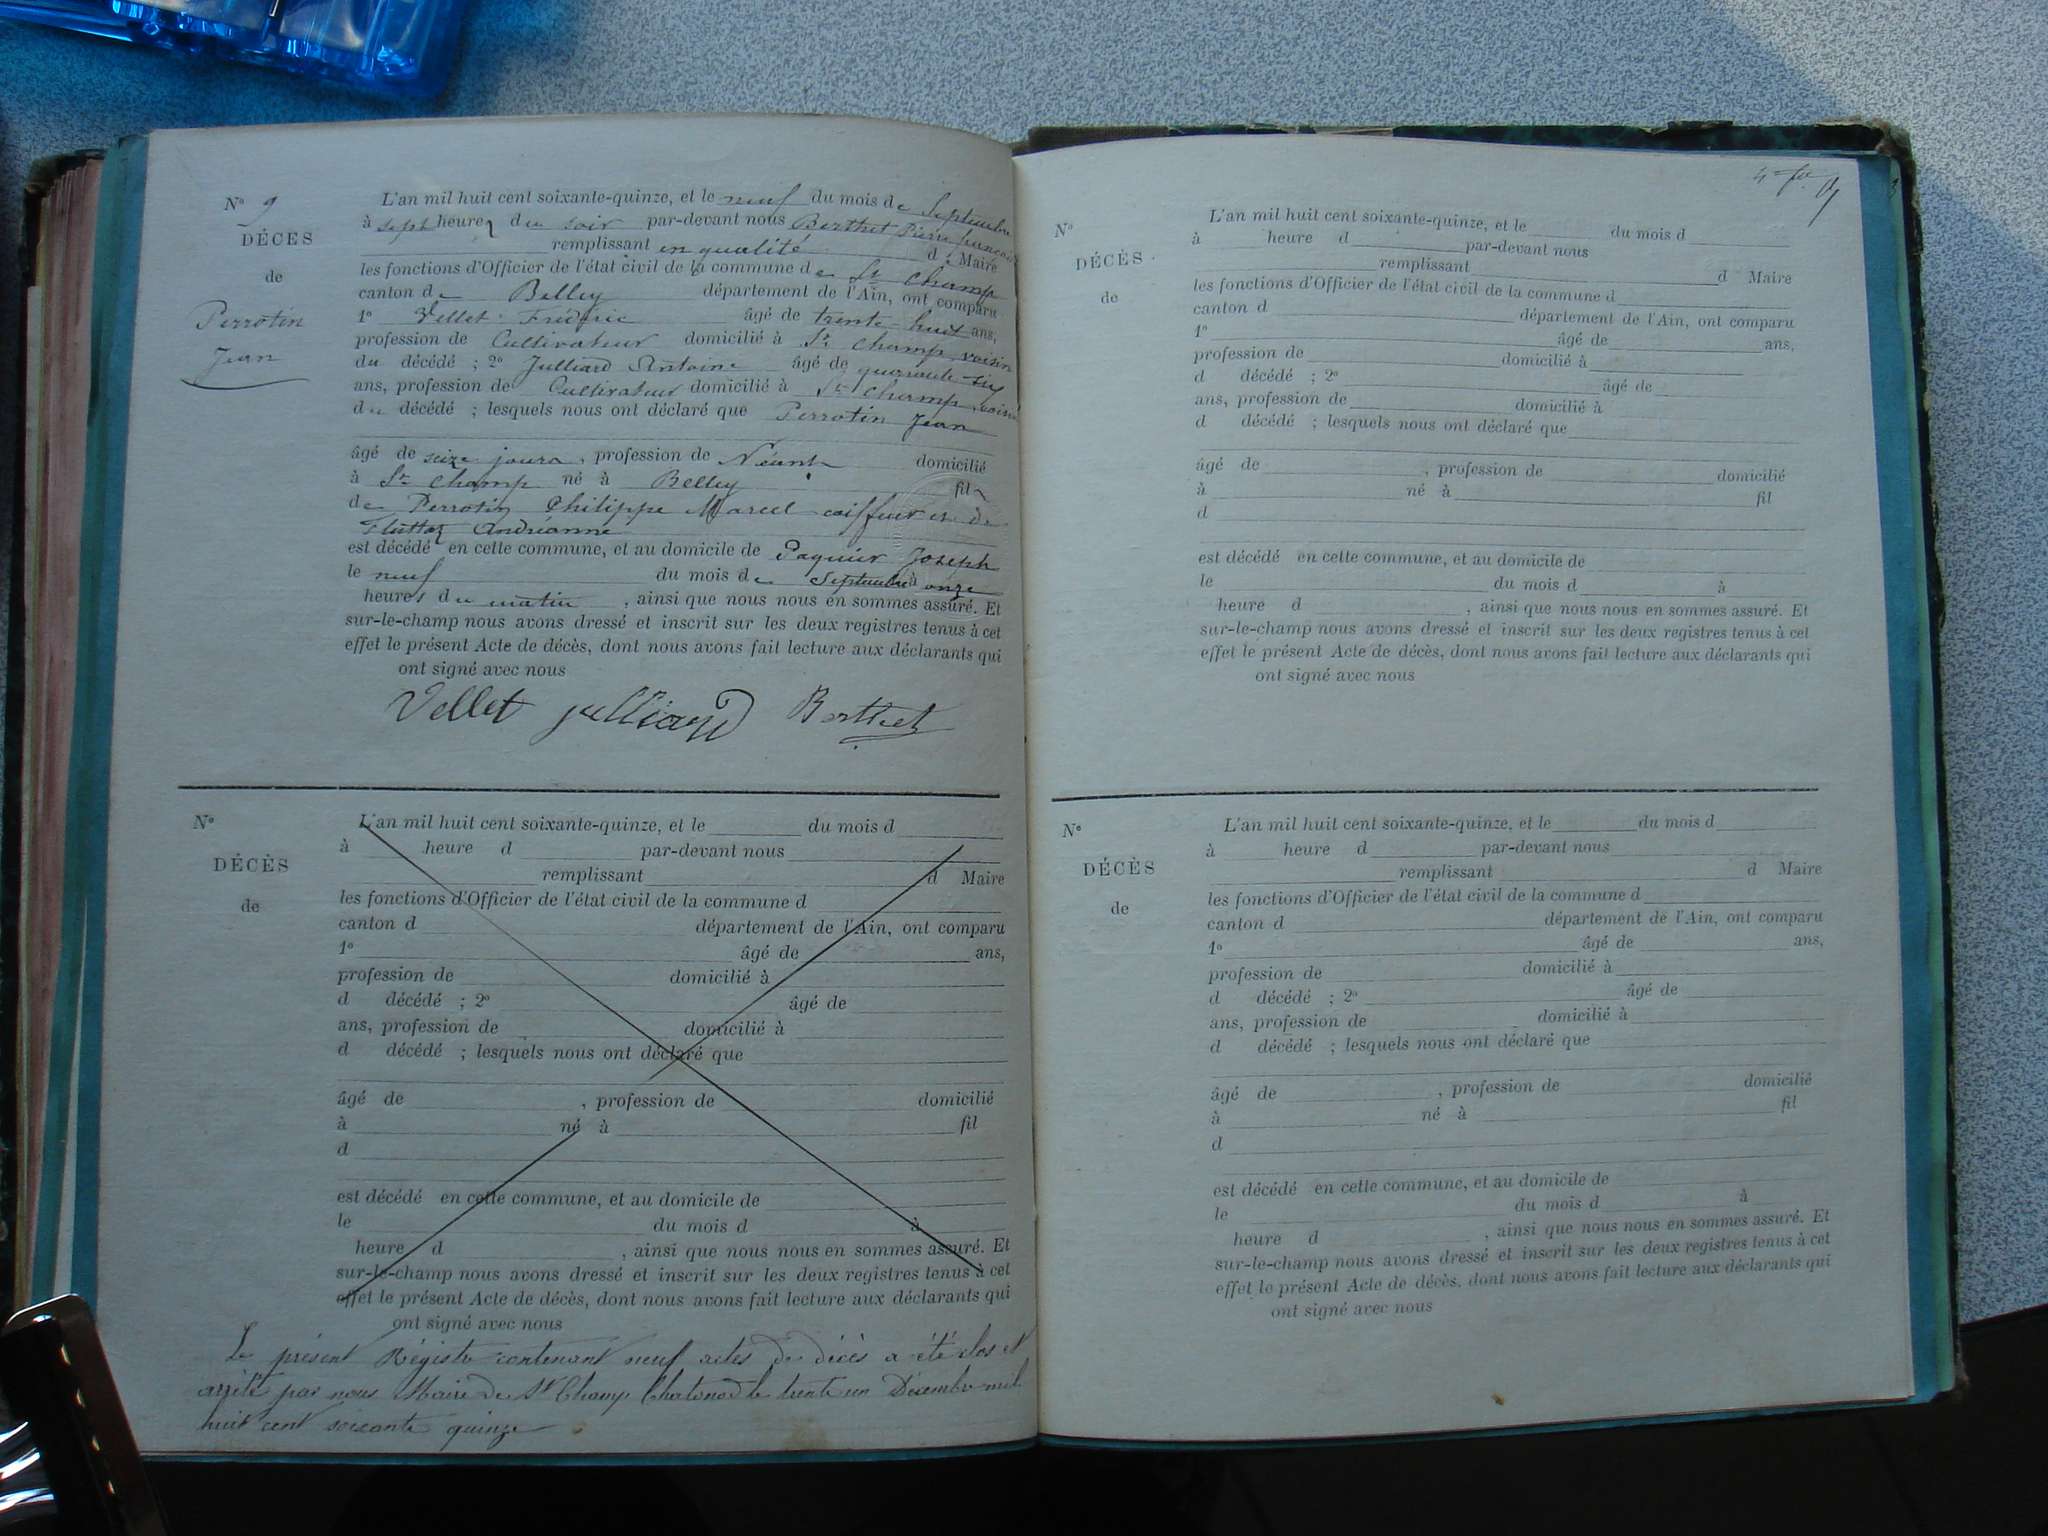 N° 9
DÉCES
de
Perrotin
Jean
L'an mil huit cent soixante-quinze, et le neuf du mois de Septembre
à sept heures du soir par-devant nous Berthet Pierre françois
remplissant en qualité d Maire
les fonctions d'Officier de l'état civil de la commune de St Champ
canton de Belley département de l'Ain, ont comparu
1° Vellet Frédéric âgé de trente huit ans,
profession de Cultivateur domicilié à St Champ voisin
du décédé ; 2° Julliard Antoine âgé de quarante six
ans, profession de Cultivateur domicilié à St Champ voisin
du décédé ; lesquels nous ont déclaré que Perrotin Jean
âgé de seize jours, profession de Néant domicilié
à St Champ né à Belley fils
de Perrotin Philippe Marcel coiffeur et de
Andréanne
est décédé en cette commune, et au domicile de Paquier Joseph
le neuf du mois de Septembre à onze
heures du matin, ainsi que nous nous en sommes assuré. Et
sur-le-champ nous avons dressé et inscrit sur les deux registres tenus à cet
effet le présent Acte de décès, dont nous avons fait lecture aux déclarants qui
ont signé avec nous
Vellet julliard Berthet
N°
DÉCÈS
de
L'an mil huit cent soixante-quinze, et le du mois d
à heure d par-devant nous
remplissant d Maire
les fonctions d'Officier de l'état civil de la commune d
canton d département de l'Ain, ont comparu
1° âgé de ans,
profession de domicilié à
d décédé ; 2° âgé de
ans, profession de domicilié à
d décédé ; lesquels nous ont déclaré que
âgé de , profession de domicilié
à né à fil
d
est décédé en cette commune, et au domicile de
le du mois d à
heure d , ainsi que nous nous en sommes assuré. Et
sur-le-champ nous avons dressé et inscrit sur les deux registres tenus à cet
effet le présent Acte de décès, dont nous avons fait lecture aux déclarants qui
ont signé avec nous
Le présent Régistre contenant neuf actes de décès a été clos et
arrêté par nous Maire de St Champ Chatonod le trente un Décembre mil
huit cent soixante quinze
N°
DÉCÈS
de
L'an mil huit cent soixante-quinze, et le du mois d
à heure d par-devant nous
remplissant d Maire
les fonctions d'Officier de l'état civil de la commune d
canton d département de l'Ain, ont comparu
1° âgé de ans,
profession de domicilié à
d décédé ; 2° âgé de
ans, profession de domicilié à
d décédé ; lesquels nous ont déclaré que
âgé de , profession de domicilié
à né à fil
d
est décédé en cette commune, et au domicile de
le du mois d à
heure d , ainsi que nous nous en sommes assuré. Et
sur-le-champ nous avons dressé et inscrit sur les deux registres tenus à cet
effet le présent Acte de décès, dont nous avons fait lecture aux déclarants qui
ont signé avec nous
N°
DÉCÈS
de
L'an mil huit cent soixante-quinze, et le du mois d
à heure d par-devant nous
remplissant d Maire
les fonctions d'Officier de l'état civil de la commune d
canton d département de l'Ain, ont comparu
1° âgé de ans,
profession de domicilié à
d décédé ; 2° âgé de
ans, profession de domicilié à
d décédé ; lesquels nous ont déclaré que
âgé de , profession de domicilié
à né à fil
d
est décédé en cette commune, et au domicile de
le du mois d à
heure d , ainsi que nous nous en sommes assuré. Et
sur-le-champ nous avons dressé et inscrit sur les deux registres tenus à cet
effet le présent Acte de décès, dont nous avons fait lecture aux déclarants qui
ont signé avec nous